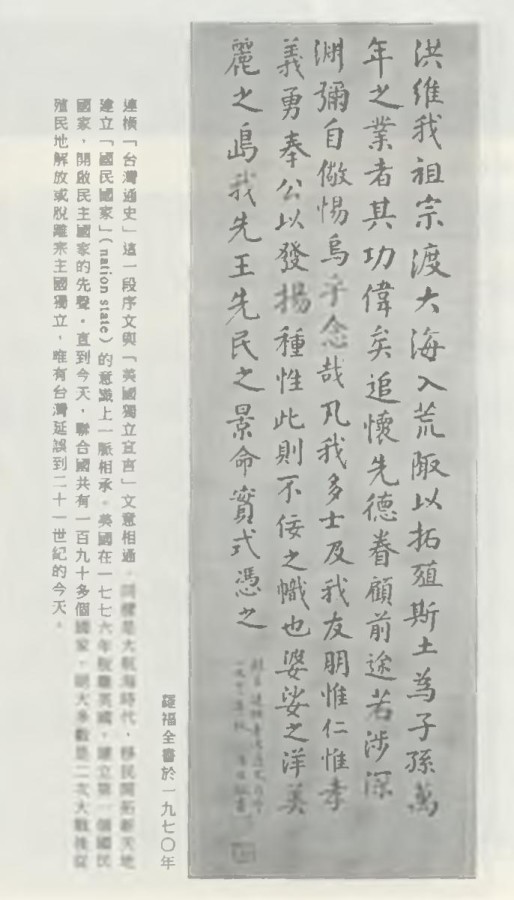 洪維我祖宗渡大海入荒陬以拓殖斯土為子孫萬
年之業者其功偉矣追懷先德眷顧前途若涉深
淵彌自儆惕烏乎念哉凡我多士及我友朋惟仁惟孝
義勇奉公以發揚種性此則不佞之幟也婆娑之洋美
麗之島我先王先民之景命實式憑之
羅福全書於一九七〇年
連橫「台灣通史」這一段序文與「英國獨立宣言」文意相通。同樣是大航海時代，移民開拓新天地
建立「國民國家」(nation state)的意識上一脈相承。英國在一七七六年脫離英國，建立第一個國民
國家，開啟民主國家的先聲。直到今天，聯合國共有一百九十多個國家，絕大多數是二次大戰後從
殖民地解放或脫離宗主國獨立，唯有台灣延誤到二十一世紀的今天。